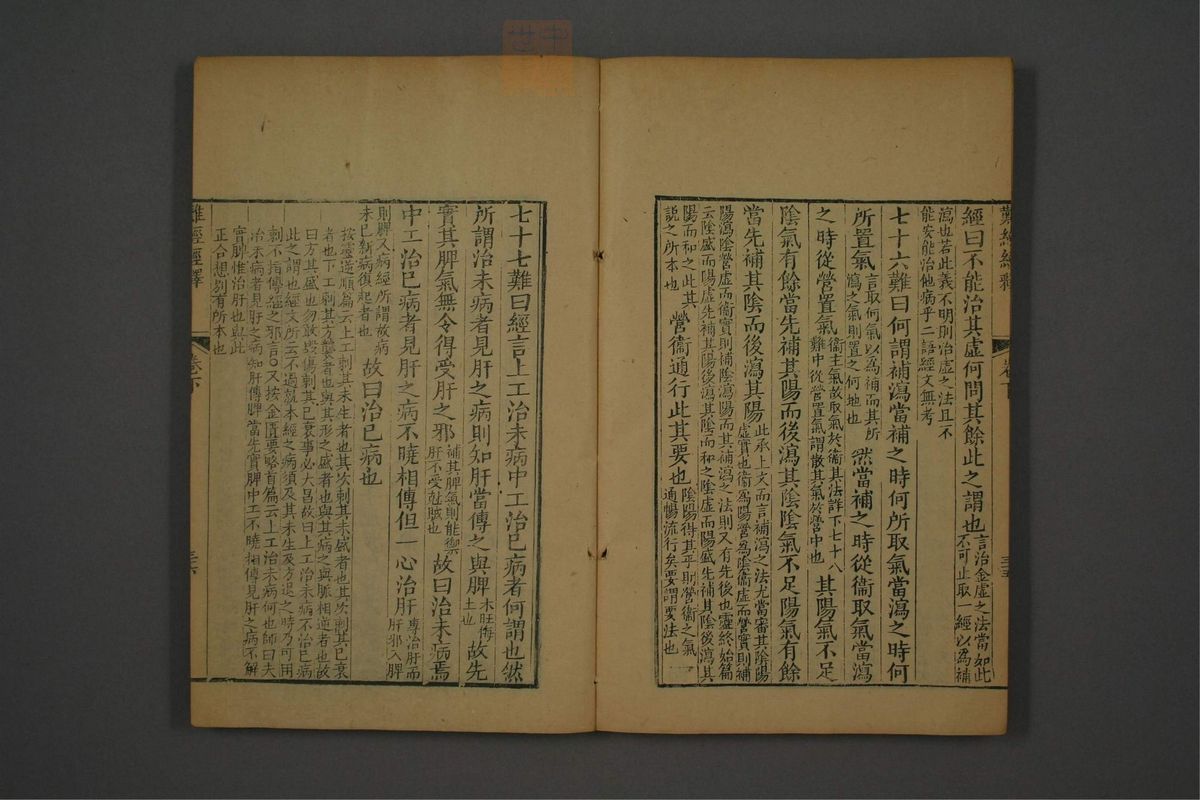 難經經釋
經曰不能治其虛何問其餘此之謂也言治金虛之法當如此不可止取一經以爲補
瀉也若此義不明則治虛之法且不能安能治他病乎二語經文無考
七十六難曰何謂補瀉當補之時何所取氣當瀉之時何
所置氣言取何氣以爲補而其所瀉之氣則置之何地也然當補之時從衞取氣當瀉
之時從營置氣衞主氣故取氣於衞其法詳下七十八難中從營置氣謂散其氣於營中也其陽氣不足
陰氣有餘當先補其陽而後瀉其陰陰氣不足陽氣有餘
當先補其陰而後瀉其陽此承上文而言補瀉之法尤當審其陰陽虛實也衞爲陽營爲陰衞虛而營實則補
陽瀉陰營虛而衞實則補陰瀉陽而其補瀉之法則又有先後也靈終始篇云陰盛而陽虛先補其陽後瀉其陰而和之陰虛而陽盛先補其陰後瀉其
陽而和之此其說之所本也營衞通行此其要也陰陽得其平則營衞之氣通暢流行矣要謂要法也
七十七難曰經言上工治未病中工治已病者何謂也然
所謂治未病者見肝之病則知肝當傳之與脾木旺侮土也故先
實其脾氣無令得受肝之邪補其脾氣則能禦肝不受尅賊也故曰治未病焉
中工治已病者見肝之病不曉相傳但一心治肝專治肝而肝邪入脾
則脾又病經所謂故病未已新病復起者也故曰治已病也
按靈逆順篇云上工刺其未生者也其次刺其未盛者也其次刺其已衰
者也下工刺其方襲者也與其形之盛者也與其病之與脈相逆者也故
曰方其盛也勿敢毀傷刺其已衰事必大昌故曰上工治未病不治已病
此之謂也經文所云不過就本經之病須及其未生及方退之時乃可用
刺不指傳經之邪言〇又按金匱要略首篇云上工治未病何也師曰夫
治未病者見肝之病知肝傳脾當先實脾中工不曉相傳見肝之病不解
實脾惟治肝也與此
正合想別有所本也
難經經釋
卷下
三六